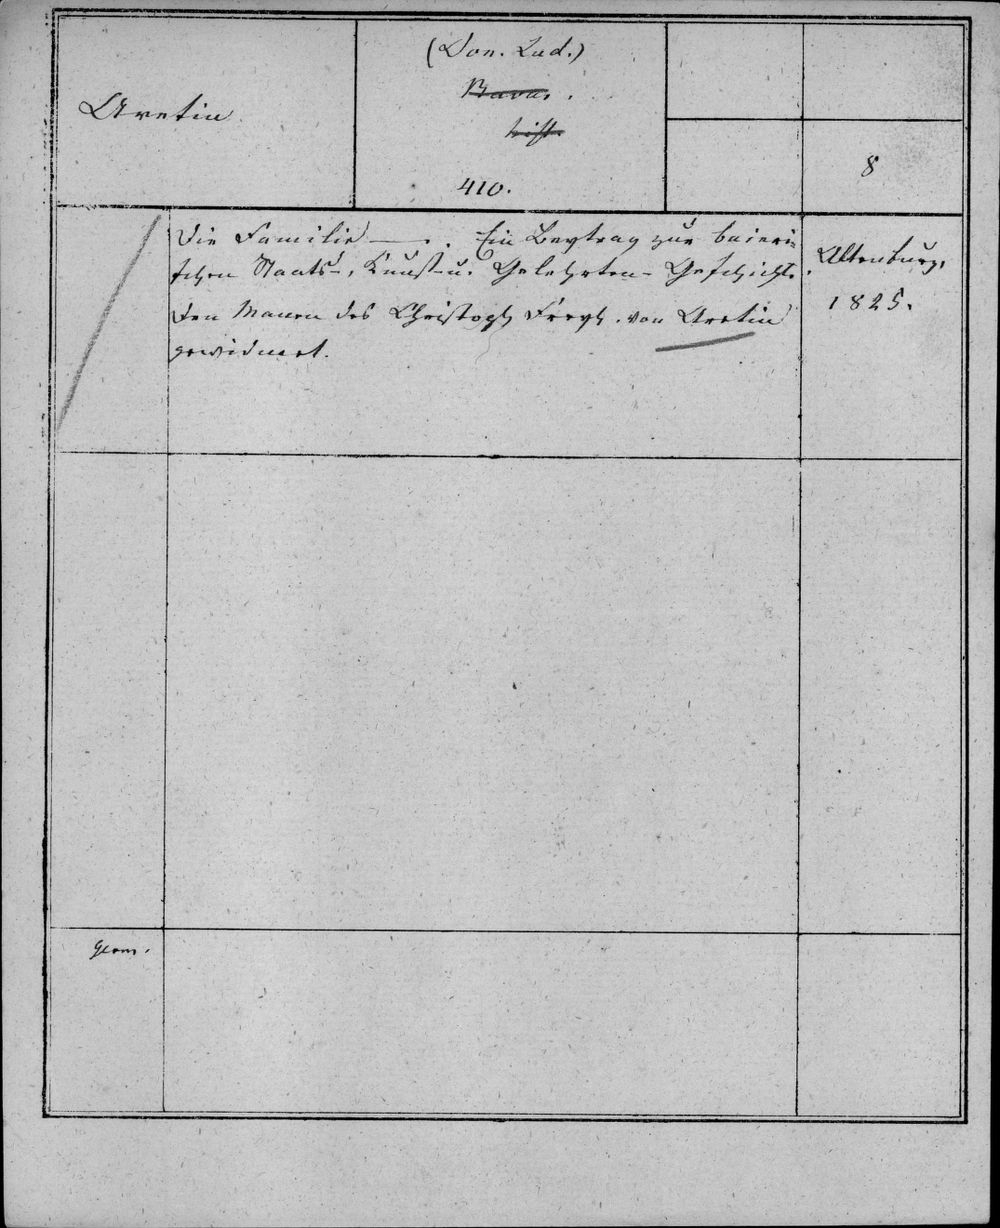 Aretin
(Don. Lud.)
Bavar.
hist.
410.
8
Die Familie —. Ein Beytrag zur baieri-
schen Staats-, Kunst- u. Gelehrten-Geschichte.
Den Manen des Christoph Freyh. von Aretin
gewidmet.
Altenburg,
1825.
Germ.